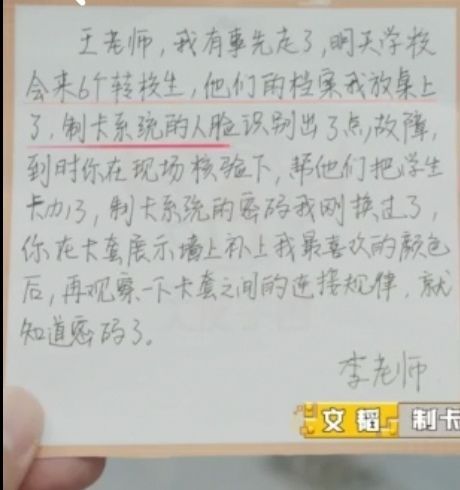 王老师，我有事先走了，明天学校
会来6个转校生，他们的档案我放桌上
了，制卡系统的人脸识别出了点故障，
到时你在现场核验下，帮他们把学生
卡办了，制卡系统的密码我刚换过了，
你在卡套展示墙上补上我最喜欢的颜色
后，再观察一下卡套之间的连接规律，就
知道密码了。
李老师
文韬 制卡